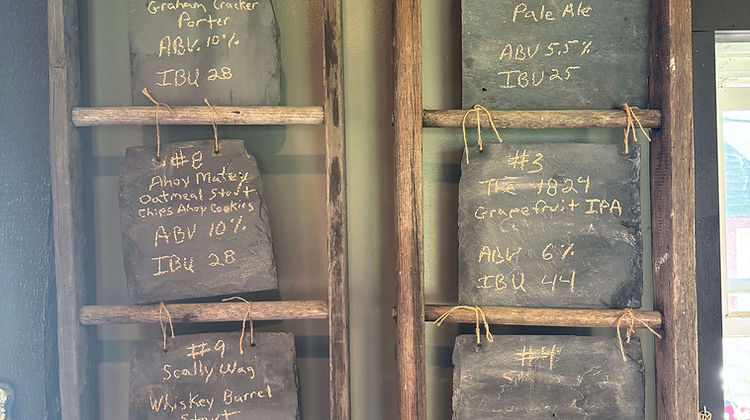 Graham Cracker
Porter
ABV 10%
IBU 28
#8
Ahoy Matey
Oatmeal Stout
Chips Ahoy Cookies
ABV 10%
IBU 28
#9
Scally Wag
Whiskey Barrel
Stout
Pale Ale
ABV 5.5%
IBU 25
#3
The 1824
Grapefruit IPA
ABV 6%
IBU 44
#4